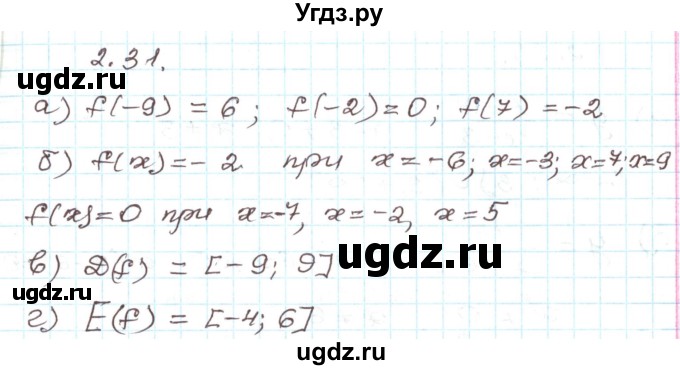 Угдз.ру
2.31.
ugdz.ru
ugdz.ru
а) f(-9) = 6; f(-2)=0; f(7) = -2
б) f(x)=- 2 при x = -6; x=-3; x=7; x=9
f(x)=0 при x=-7, x = -2, x = 5
в) D(f) = [-9; 9]
ugdz.ru
ugdz.ru
г) E(f) = [-4; 6]
ugdz.ru